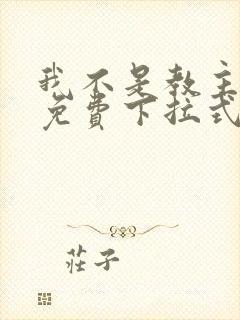 我不是教主
免費下拉式
莊子